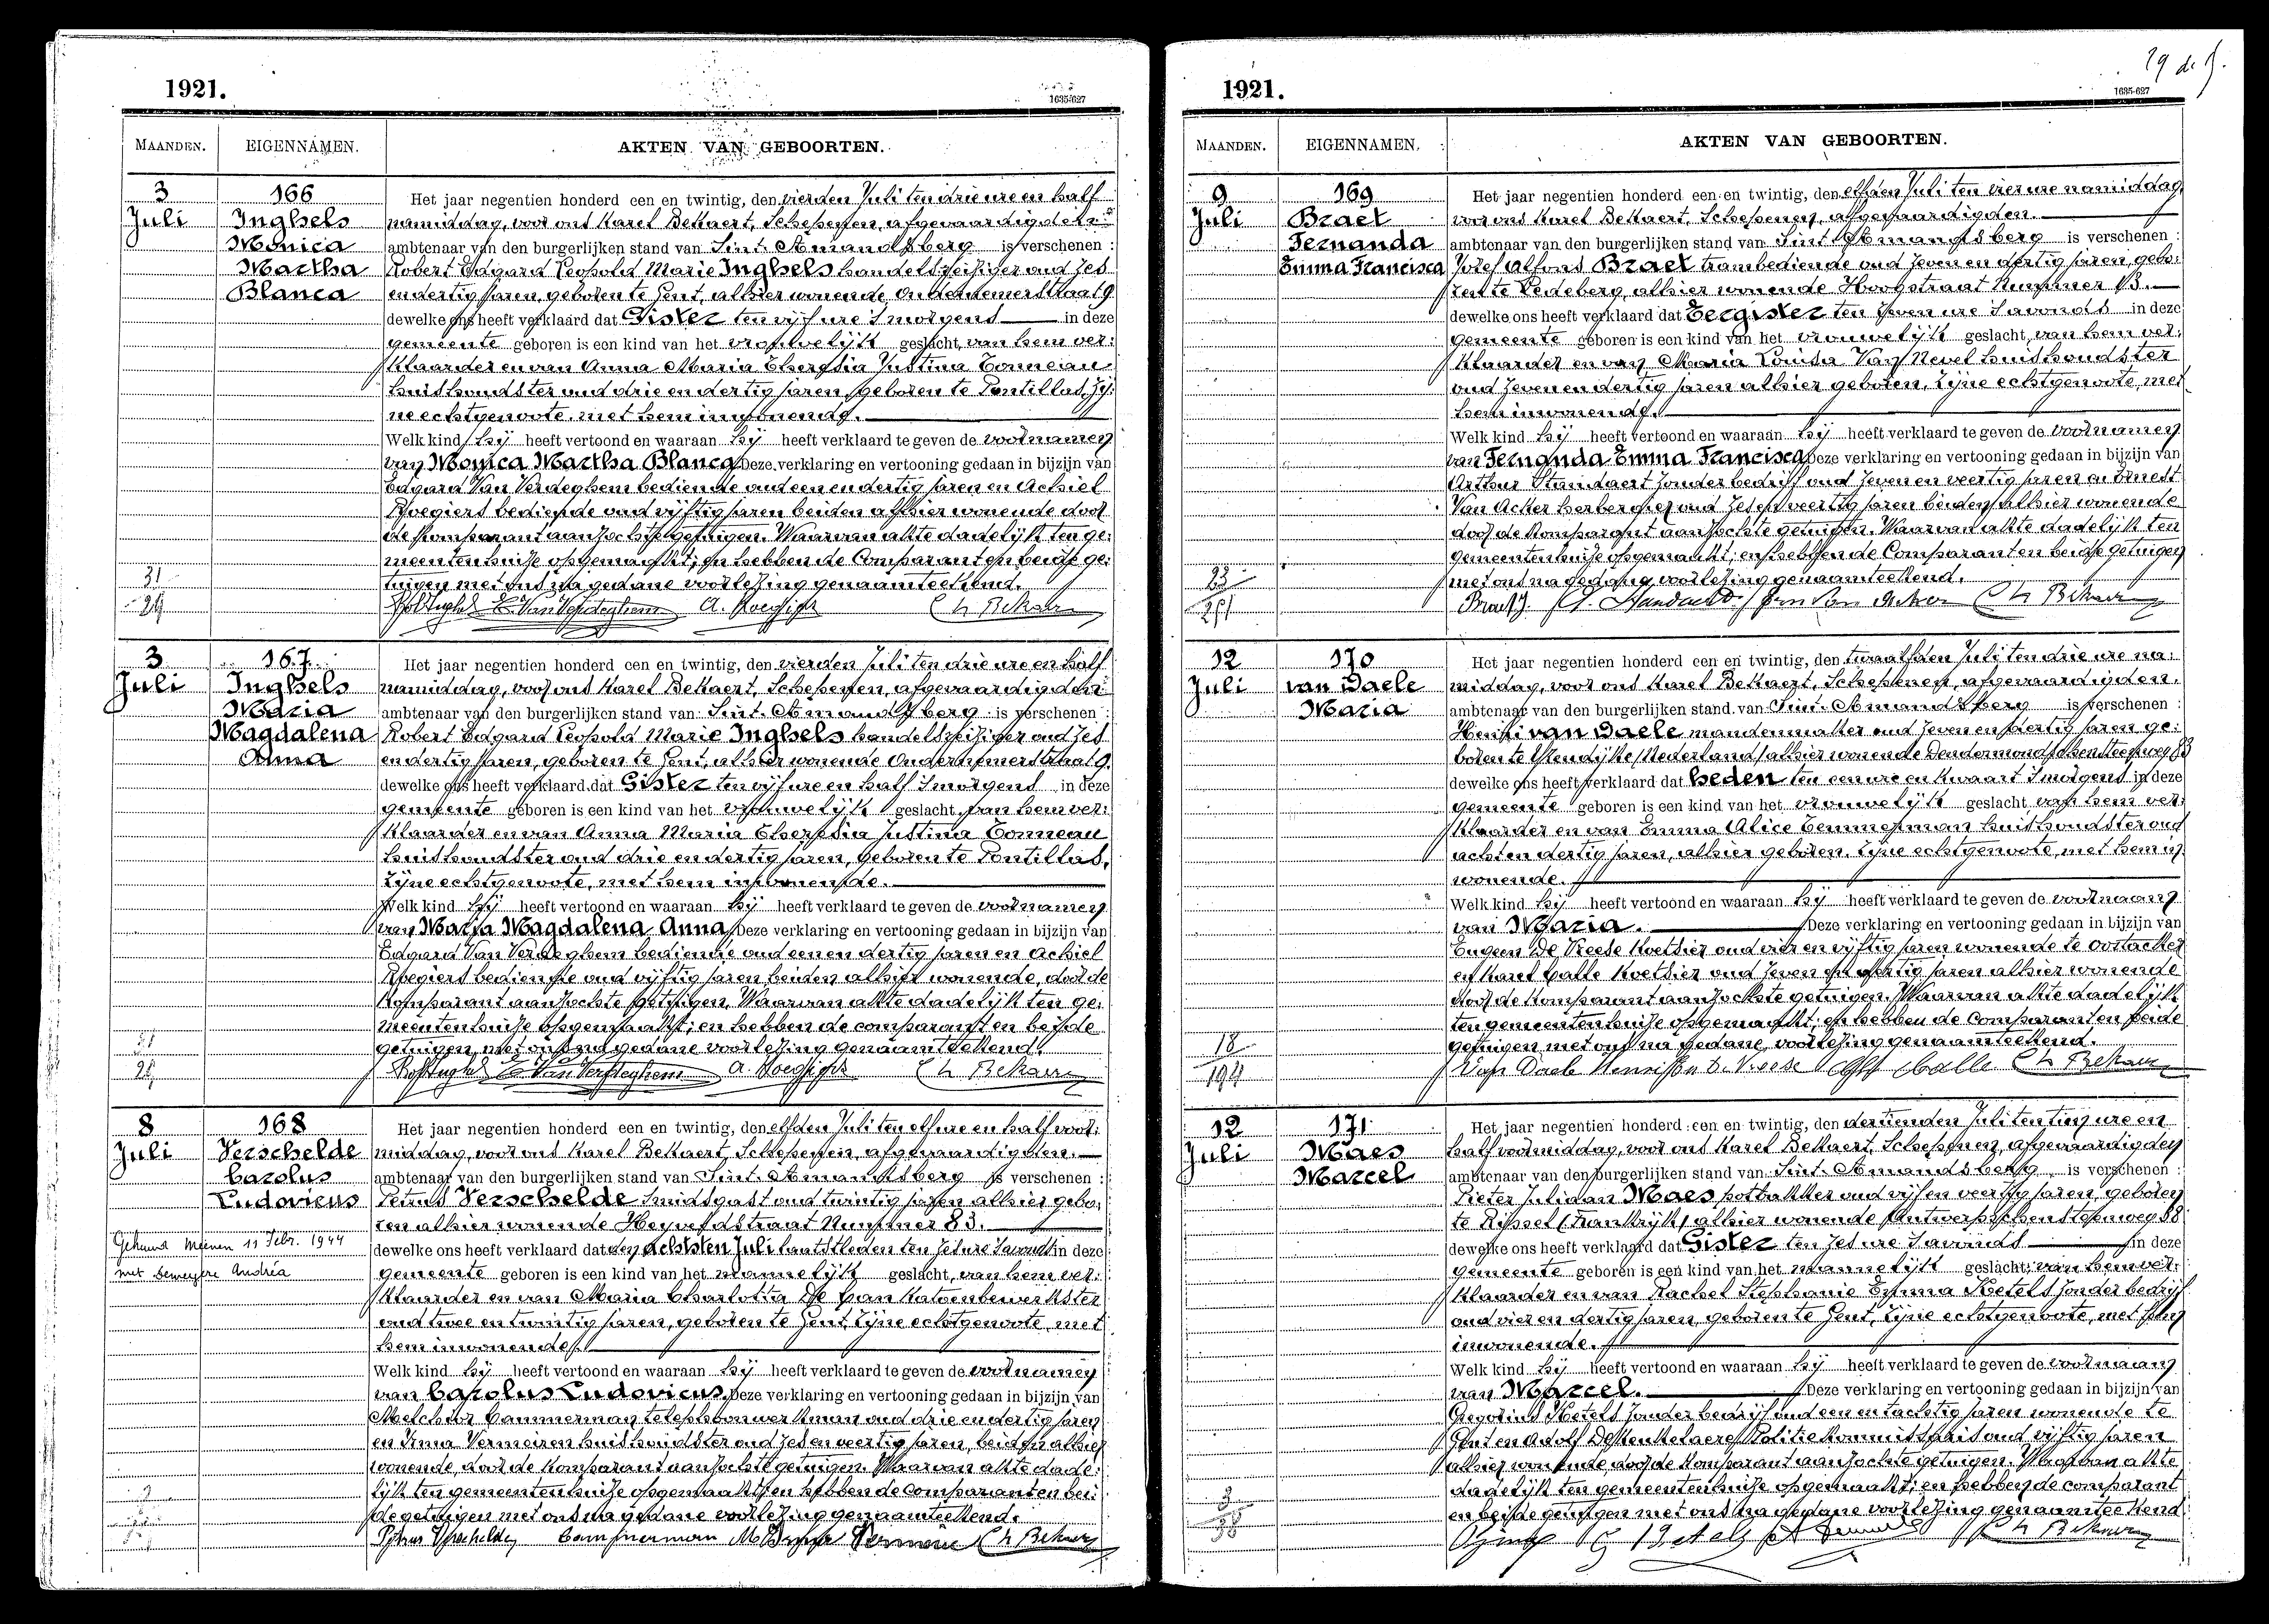 1921.
1635-627
MAANDEN. EIGENNAMEN. AKTEN VAN GEBOORTEN.
3 Juli
166
Inghels
Monica
Martha
Blanca
Het jaar negentien honderd een en twintig, den vierden Juli ten drie ure en half
namiddag, voor ons Karel Bekaert, Schepenen, afgevaardigden
ambtenaar van den burgerlijken stand van Sint-Amandsberg is verschenen :
Robert Edgard Leopold Marie Inghels handelsreiziger oud zes
en dertig jaren, geboren te Gent, alhier wonende Ondernemerstraat 9.
dewelke ons heeft verklaard dat Gister ten vijf ure 's morgens in deze
gemeente geboren is een kind van het vrouwelijk geslacht, van hem ver:
klaarder en van Anna Maria Theresia Justina Tonneau
huishoudster oud drie en dertig jaren geboren te Pontillas, zij:
ne echtgenoote, met hem inwonende.
Welk kind hij heeft vertoond en waaraan hij heeft verklaard te geven de voornamen
van Monica Martha Blanca Deze verklaring en vertooning gedaan in bijzijn van
Edgard Van Verdeghem bediende oud een en dertig jaren en Achiel
Roegiers bediende oud vijftig jaren beiden alhier wonende door
de komparant aanzochte getuigen. Waarvan akte dadelijk ten ge:
meentenhuize opgemaakt; en hebben de Comparant en beide ge:
tuigen met ons na gedane voorlezing genaamteekend.
31
29
E. Van Verdeghem
3 Juli
167
Inghels
Maria
Magdalena
Anna
Het jaar negentien honderd een en twintig, den vierden Juli ten drie ure en half
namiddag, voor ons Karel Bekaert, Schepenen, afgevaardigden
ambtenaar van den burgerlijken stand van Sint-Amandsberg is verschenen :
Robert Edgard Leopold Marie Inghels handelsreiziger oud zes
en dertig jaren, geboren te Gent, alhier wonende Ondernemerstraat 9.
dewelke ons heeft verklaard dat Gister ten vijf ure en half 's morgens in deze
gemeente geboren is een kind van het vrouwelijk geslacht, van hem ver:
klaarder en van Anna Maria Theresia Justina Tonneau
huishoudster oud drie en dertig jaren, geboren te Pontillas,
zijne echtgenoote, met hem inwonende.
Welk kind hij heeft vertoond en waaraan hij heeft verklaard te geven de voornamen
van Maria Magdalena Anna, Deze verklaring en vertooning gedaan in bijzijn van
Edgard Van Verdeghem bediende oud een en dertig jaren en Achiel
Roegiers bediende oud vijftig jaren beiden alhier wonende, door de
komparant aanzochte getuigen. Waarvan akte dadelijk ten ge:
meentenhuize opgemaakt; en hebben de comparant en beide
getuigen met ons na gedane voorlezing genaamteekend.
E. Van Verdeghem
8 Juli
168
Verschelde
Carolus
Ludovicus
Gehuwd Meenen 11 Febr. 1944
met Andréa
Het jaar negentien honderd een en twintig, den elfden Juli ten elf ure en half voor:
middag, voor ons Karel Bekaert, Schepenen, afgevaardigden.
ambtenaar van den burgerlijken stand van Sint-Amandsberg is verschenen :
Petrus Verschelde smidsgast oud twintig jaren alhier gebo:
ren alhier wonende Heyveldstraat Nummer 83.
dewelke ons heeft verklaard dat den achtsten Juli laatstleden ten zes ure 's avonds in deze
gemeente geboren is een kind van het mannelijk geslacht, van hem ver:
klaarder en van Maria Charlotta De Pan katoenbewerkster
oud twee en twintig jaren, geboren te Gent, zijne echtgenoote, met
hem inwonende.
Welk kind hij heeft vertoond en waaraan hij heeft verklaard te geven de voornamen
van Carolus Ludovicus. Deze verklaring en vertooning gedaan in bijzijn van
Melchior Cammerman telephoonwerkman oud drie en dertig jaren
en Irma Vermeiren huishoudster oud zes en veertig jaren, beiden alhier
wonende, door de komparant aanzochte getuigen. Waarvan akte dade:
lijk ten gemeentenhuize opgemaakt; en hebben de comparant en bei:
de getuigen met ons na gedane voorlezing genaamteekend.
Petrus Verschelde Cammerman M
1921.
1635-627
MAANDEN. EIGENNAMEN. AKTEN VAN GEBOORTEN.
9 Juli
169
Braet
Fernanda
Emma Francisca
Het jaar negentien honderd een en twintig, den elfden Juli ten vier ure namiddag,
voor ons Karel Bekaert, Schepenen, afgevaardigden.
ambtenaar van den burgerlijken stand van Sint-Amandsberg is verschenen :
Jozef Alfons Braet trambediende oud zeven en dertig jaren, gebo:
ren te Ledeberg, alhier wonende Hoogstraat Nummer 13.
dewelke ons heeft verklaard dat Eergister ten zeven ure 's avonds in deze
gemeente geboren is een kind van het vrouwelijk geslacht, van hem ver:
klaarder en van Maria Louisa Van Nevel huishoudster
oud zeven en dertig jaren alhier geboren, zijne echtgenoote, met
hem inwonende.
Welk kind hij heeft vertoond en waaraan hij heeft verklaard te geven de voornamen
van Fernanda Emma Francisca Deze verklaring en vertooning gedaan in bijzijn van
Arthur Standaert zonder bedrijf oud zeven en veertig jaren en Ernest
Van Acker herbergier oud zes en veertig jaren beiden alhier wonende
door de komparant aanzochte getuigen. Waarvan akte dadelijk ten
gemeentenhuize opgemaakt; en hebben de Comparant en beide getuigen
met ons na gedane voorlezing genaamteekend.
12 Juli
170
van Daele
Maria
Het jaar negentien honderd een en twintig, den twaalfden Juli ten drie ure na:
middag, voor ons Karel Bekaert, Schepenen, afgevaardigden.
ambtenaar van den burgerlijken stand van Sint-Amandsberg is verschenen :
Henri van Daele mandenmaker oud zeven en dertig jaren ge:
boren te IJzendijke (Nederland) alhier wonende Dendermondschensteenweg 83
dewelke ons heeft verklaard dat heden ten een ure en kwaart 's morgens in deze
gemeente geboren is een kind van het vrouwelijk geslacht van hem ver:
klaarder en van Emma Alice Temmerman huishoudster oud
acht en dertig jaren, alhier geboren, zijne echtgenoote, met hem in
wonende.
Welk kind hij heeft vertoond en waaraan hij heeft verklaard te geven de voornaam
van Maria. Deze verklaring en vertooning gedaan in bijzijn van
Eugeen De Vreese koetsier oud vier en vijftig jaren wonende te Oostacker
en Karel Calle koetsier oud zeven en dertig jaren alhier wonende
door de komparant aanzochte getuigen. Waarvan akte dadelijk
ten gemeentenhuize opgemaakt; en hebben de Comparant en beide
getuigen met ons na gedane voorlezing genaamteekend.
18
194
Van Daele Henri
12 Juli
171
Maes
Marcel
Het jaar negentien honderd een en twintig, den dertienden Juli ten tien ure en
half voormiddag, voor ons Karel Bekaert, Schepenen, afgevaardigden
ambtenaar van den burgerlijken stand van Sint-Amandsberg is verschenen :
Pieter Juliaan Maes potbakker oud vijf en veertig jaren, geboren
te Rijssel (Frankrijk) alhier wonende Antwerpschensteenweg 88
dewelke ons heeft verklaard dat Gister ten zes ure 's avonds in deze
gemeente geboren is een kind van het mannelijk geslacht, van hem ver:
klaarder en van Rachel Stephanie Emma Ketels zonder bedrijf
oud vier en dertig jaren, geboren te Gent, zijne echtgenoote, met hem
inwonende.
Welk kind hij heeft vertoond en waaraan hij heeft verklaard te geven de voornaam
van Marcel. Deze verklaring en vertooning gedaan in bijzijn van
Gregorius Ketels zonder bedrijf oud een en tachtig jaren wonende te
Gent en Adolf De Keukelaere Politiekommissaris oud vijftig jaren
alhier wonende, door de komparant aanzochte getuigen. Waarvan akte
dadelijk ten gemeentenhuize opgemaakt; en hebben de comparant
en beide getuigen met ons na gedane voorlezing genaamteekend